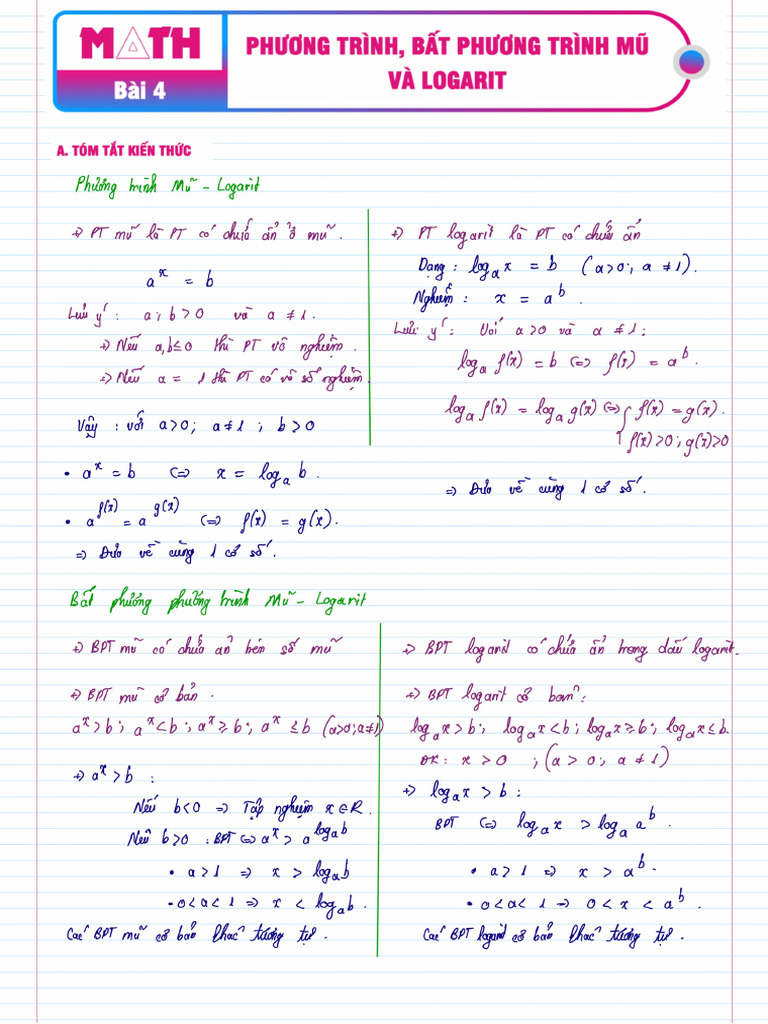 MATH
Bài 4
PHƯƠNG TRÌNH, BẤT PHƯƠNG TRÌNH MŨ
VÀ LOGARIT
A. TÓM TẮT KIẾN THỨC
Phương trình Mũ - Logarit
+) PT mũ là PT có chứa ẩn ở mũ.
a^x = b
Lưu ý: a; b > 0 và a ≠ 1.
+) Nếu a,b ≤ 0 thì PT vô nghiệm.
+) Nếu a = 1 thì PT có vô số nghiệm.
Vậy : với a>0; a≠1 ; b>0
• a^x = b <=> x = log_a b.
• a^f(x) = a^g(x) <=> f(x) = g(x).
=> Đưa về cùng 1 cơ số.
+) PT logarit là PT có chứa ẩn
Dạng: log_a x = b (a>0; a≠1).
Nghiệm: x = a^b.
Lưu ý: Với a>0 và a≠1;
log_a f(x) = b <=> f(x) = a^b.
log_a f(x) = log_a g(x) <=> { f(x) = g(x).
f(x)>0; g(x)>0
=> Đưa về cùng 1 cơ số.
Bất phương phương trình Mũ - Logarit
+) BPT mũ có chứa ẩn trên số mũ
+) BPT mũ cơ bản.
a^x>b; a^x<b; a^x≥b; a^x≤b (a>0;a≠1)
+) a^x>b :
Nếu b<0 => Tập nghiệm x∈R.
Nếu b>0 : BPT <=> a^x > a^log_a b
• a>1 => x > log_a b
• 0<a<1 => x < log_a b.
Các BPT mũ cơ bản khác tương tự.
+) BPT logarit có chứa ẩn trong dấu logarit.
+) BPT logarit cơ bản:
log_a x>b; log_a x<b; log_a x≥b; log_a x≤b.
ĐK: x>0 ; (a>0; a≠1)
+) log_a x > b :
BPT <=> log_a x > log_a a^b.
• a>1 => x > a^b.
• 0<a<1 => 0<x<a^b.
Các BPT logarit cơ bản khác tương tự.